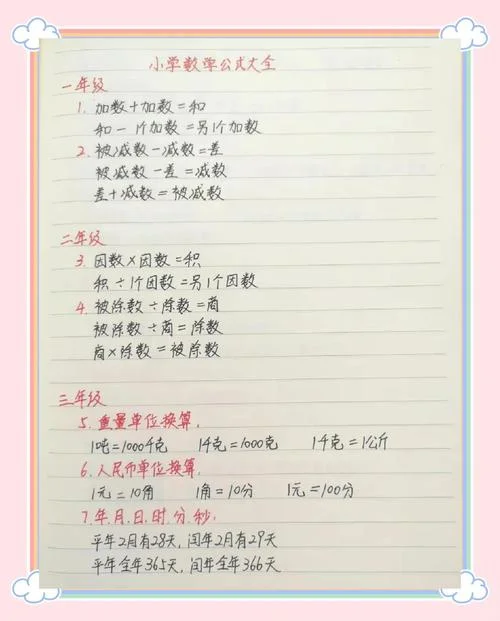 小学数学公式大全
一年级
1. 加数+加数=和
和-1个加数=另1个加数
2. 被减数-减数=差
被减数-差=减数
差+减数=被减数
二年级
3. 因数×因数=积
积÷1个因数=另1个因数
4. 被除数÷除数=商
被除数÷商=除数
商×除数=被除数
三年级
5. 重量单位换算.
1吨=1000千克 1千克=1000克 1千克=1公斤
6. 人民币单位换算.
1元=10角 1角=10分 1元=100分
7. 年.月.日.时.分.秒.
平年2月有28天,闰年2月有29天
平年全年365天,闰年全年366天